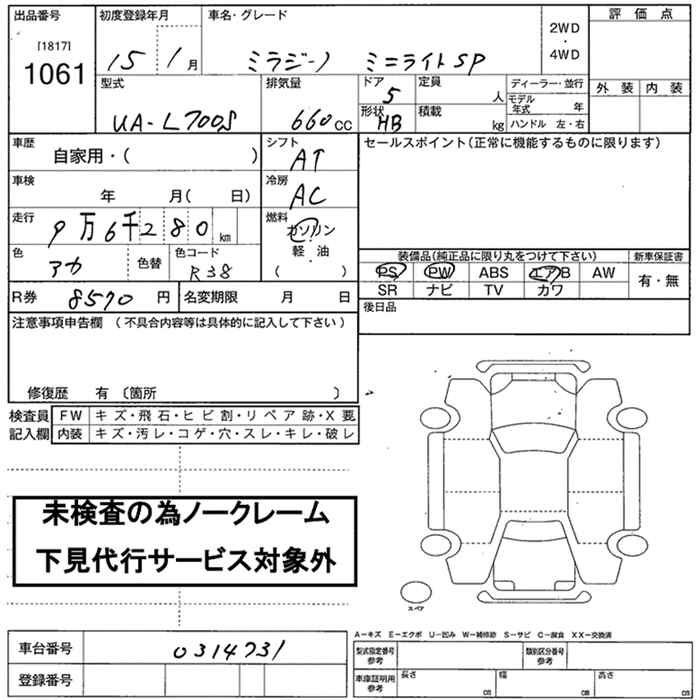 出品番号 初度登録年月 車名・グレード 2WD・4WD 評価点
[1817]
1061 15 1月 ミラジーノ ミニライトSP
外装 内装
型式 排気量 ドア 定員 ディーラー・並行
5 人 モデル年式 年
UA-L700S 660cc 形状 HB 積載 kg ハンドル 左・右
車歴 シフト セールスポイント(正常に機能するものに限ります)
自家用・( ) AT
車検 冷房
年 月( 日) AC
走行 燃料
9万6千280km ガソリン
軽・油
( )
色 アカ 色替 色コード R38
装備品(純正品に限り丸をつけて下さい) 新車保証書
PS PW ABS エアB AW 有・無
SR ナビ TV カワ
R券 8570円 名変期限 月 日 後日品
注意事項申告欄 (不具合内容等は具体的に記入して下さい)
修復歴 有〔箇所 〕
検査員 FW キズ・飛石・ヒビ割・リペア跡・X要
記入欄 内装 キズ・汚レ・コゲ・穴・スレ・キレ・破レ
未検査の為ノークレーム
下見代行サービス対象外
スペア
A－キズ E－エクボ U－凹み W－補修跡 S－サビ C－腐食 XX－交換済
車台番号 0314731 型式指定番号 参考 類別区分番号 参考
登録番号 車庫証明用 参考 長さ cm 幅 cm 高さ cm